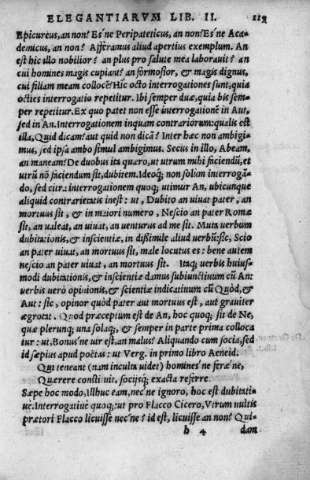 ELEGANTIARVM LIB. II. 113
Epicureus, an non? Es'ne Peripateticus, an non? Es'ne Aca
demicus, an non? Afferamus aliud apertius exemplum. An
est hic illo nobilior? an plus pro salute mea laborauit? an
cui homines magis cupiant? an formosior, & magis dignus,
cui filiam meam collocē? Hic octo interrogationes sunt, quia
octies interrogatio repetitur. Ibi semper duæ, quia bis sem-
per repetitur. Ex quo patet non esse inuerrogationē in Aut,
sed in An. Interrogationem inquam contrariorum: qualis est
illa, Quid dicam? aut quid non dicā? Inter hæc non ambigi-
mus, sed ipsa ambo simul ambigimus. Secus in illo, Abeam,
an maneam? De duobus ita quæro, ut utrum mihi faciendū, et
utrū nō faciendum sit, dubitem. Ideoq; non solum interrogā-
do, sed citra interrogationem quoq; utimur An, ubicunque
aliquid contrarietatis inest: ut, Dubito an uiuat pater, an
mortuus sit, & in maiori numero, Nescio an pater Romæ
sit, an ualeat, an uiuat, an uenturus ad me sit. Muta uerbum
dubitationis, & inscientiæ, in dissimile aliud uerbū: sic, Scio
an pater uiuat, an mortuus sit, male locutus es: bene autem
nescio an pater uiuat, an mortuus sit. Itaq; uerbis huius-
modi dubitationis, & inscientiæ damus subiunctiuum cū An:
uerbis uerò opinionis, & scientiæ indicatiuum cū Quòd, &
Aut: sic, opinor quòd pater aut mortuus est, aut grauiter
ægrotat. Quod præceptum est de An, hoc quoq; sit de Ne,
quæ plerunq; una solaq;, & semper in parte prima colloca
tur: ut, Bonus'ne uir est. an malus? Aliquando cum socia, sed
id sæpius apud poëtas: ut Verg. in primo libro Aeneid.
Qui teneant (nam inculta uidet) homines'ne feræ ne,
Quærere constituit, socijsq; exacta referre.
Sæpe hoc modo, Illhuc eam, nec'ne ignoro, hoc est dubitati-
ue. Interrogatiuè quoq;: ut pro Flacco Cicero, Vtrum multis
prætori Flacco licuisse nec'ne? id est, licuisse an non? Qui-
h 4 dam